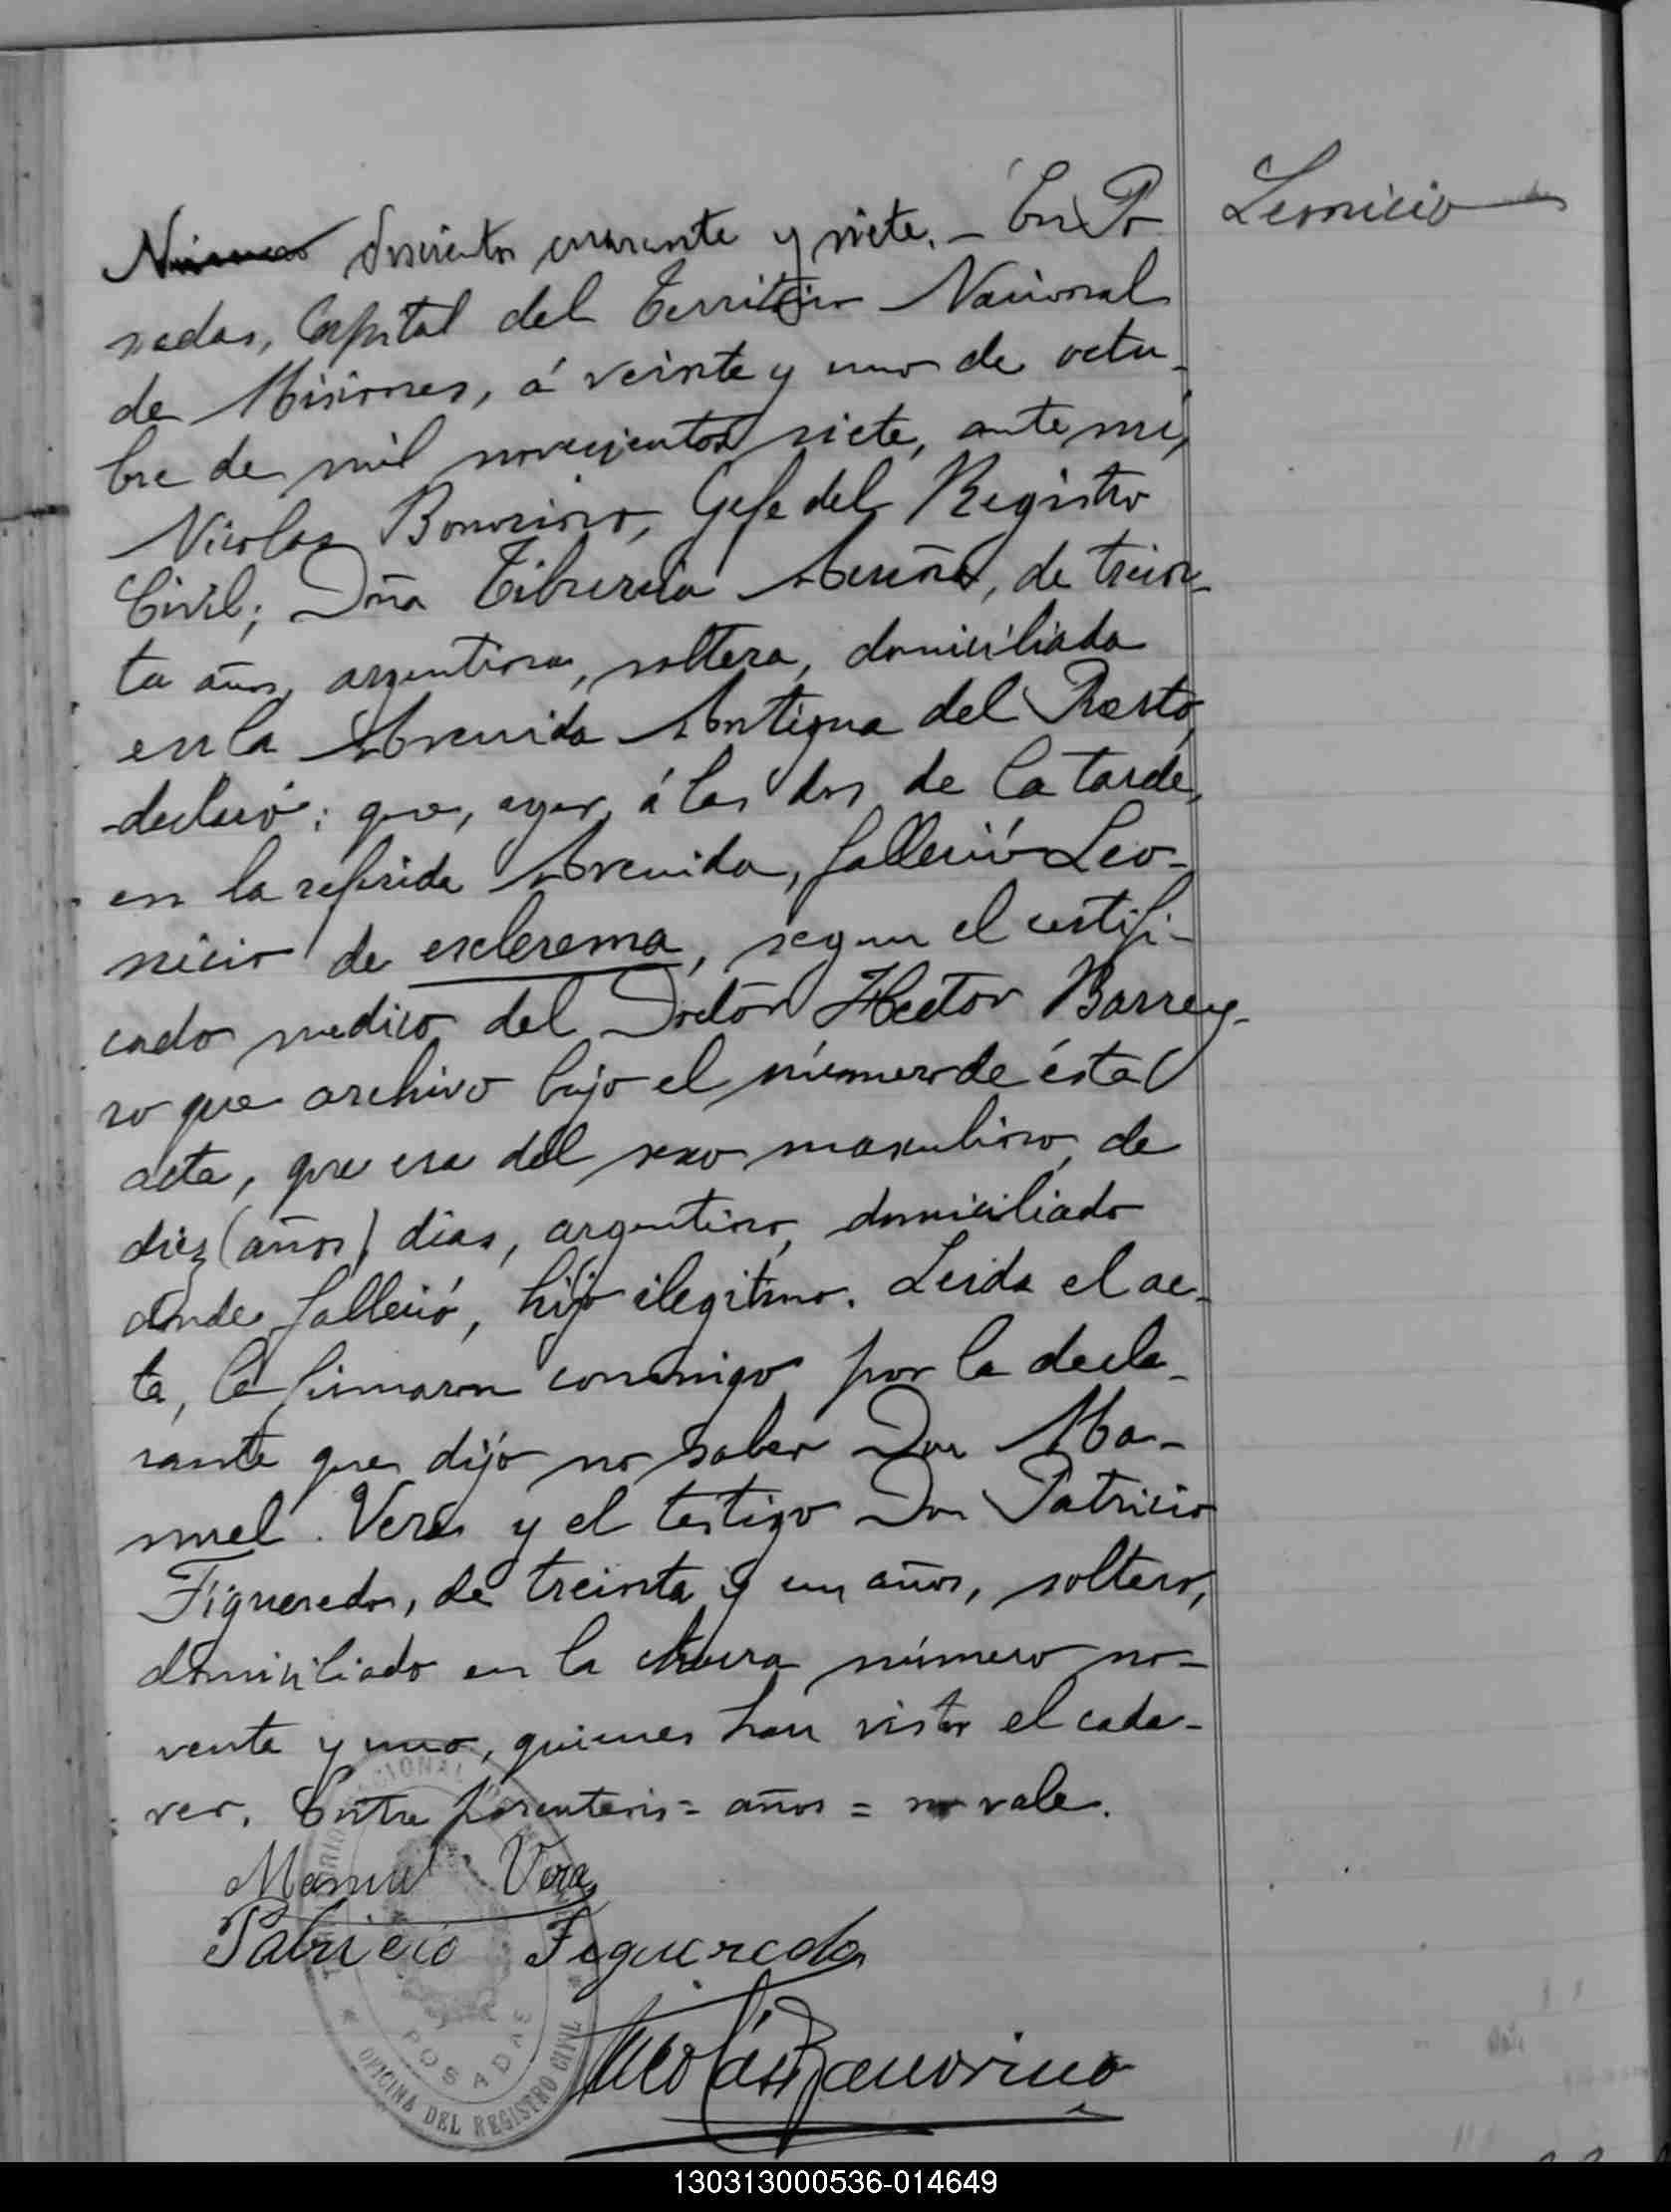 Leonicio
Número doscientos cuarenta y siete. - En Po
sadas, Capital del Territorio Nacional
de Misiones, á veinte y uno de octu-
bre de mil novecientos siete, ante mi,
Nicolas Bonorino, Gefe del Registro
Civil; Doña Tiburcia Acuña, de trein-
ta años, argentina, soltera, domiciliada
en la Avenida Antigua del
declaró: que, ayer, á las dos de la tarde,
en la referida Avenida, falleció Leo-
nicio de esclerema, segun el certifi-
cado medico del Doctor Hector Barrey-
ro que archivo bajo el número de ésta
acta, que era del sexo masculino, de
diez (años) dias, argentino, domiciliado
donde falleció, hijo ilegitimo. Leida el ac-
ta, la firmaron conmigo por la decla-
rante que dijó no saber Don Ma-
nuel Vera y el testigo Don Patricio
Figueredo, de treinta y un años, soltero,
domiciliado en la chacra número no-
venta y uno, quienes han visto el cada-
ver. Entre parentesis = años = no vale.
Manuel Vera
Patricio Figueredo
Nicolás Bonorino
OFICINA DEL REGISTRO CIVIL
POSADAS
130313000536-014649